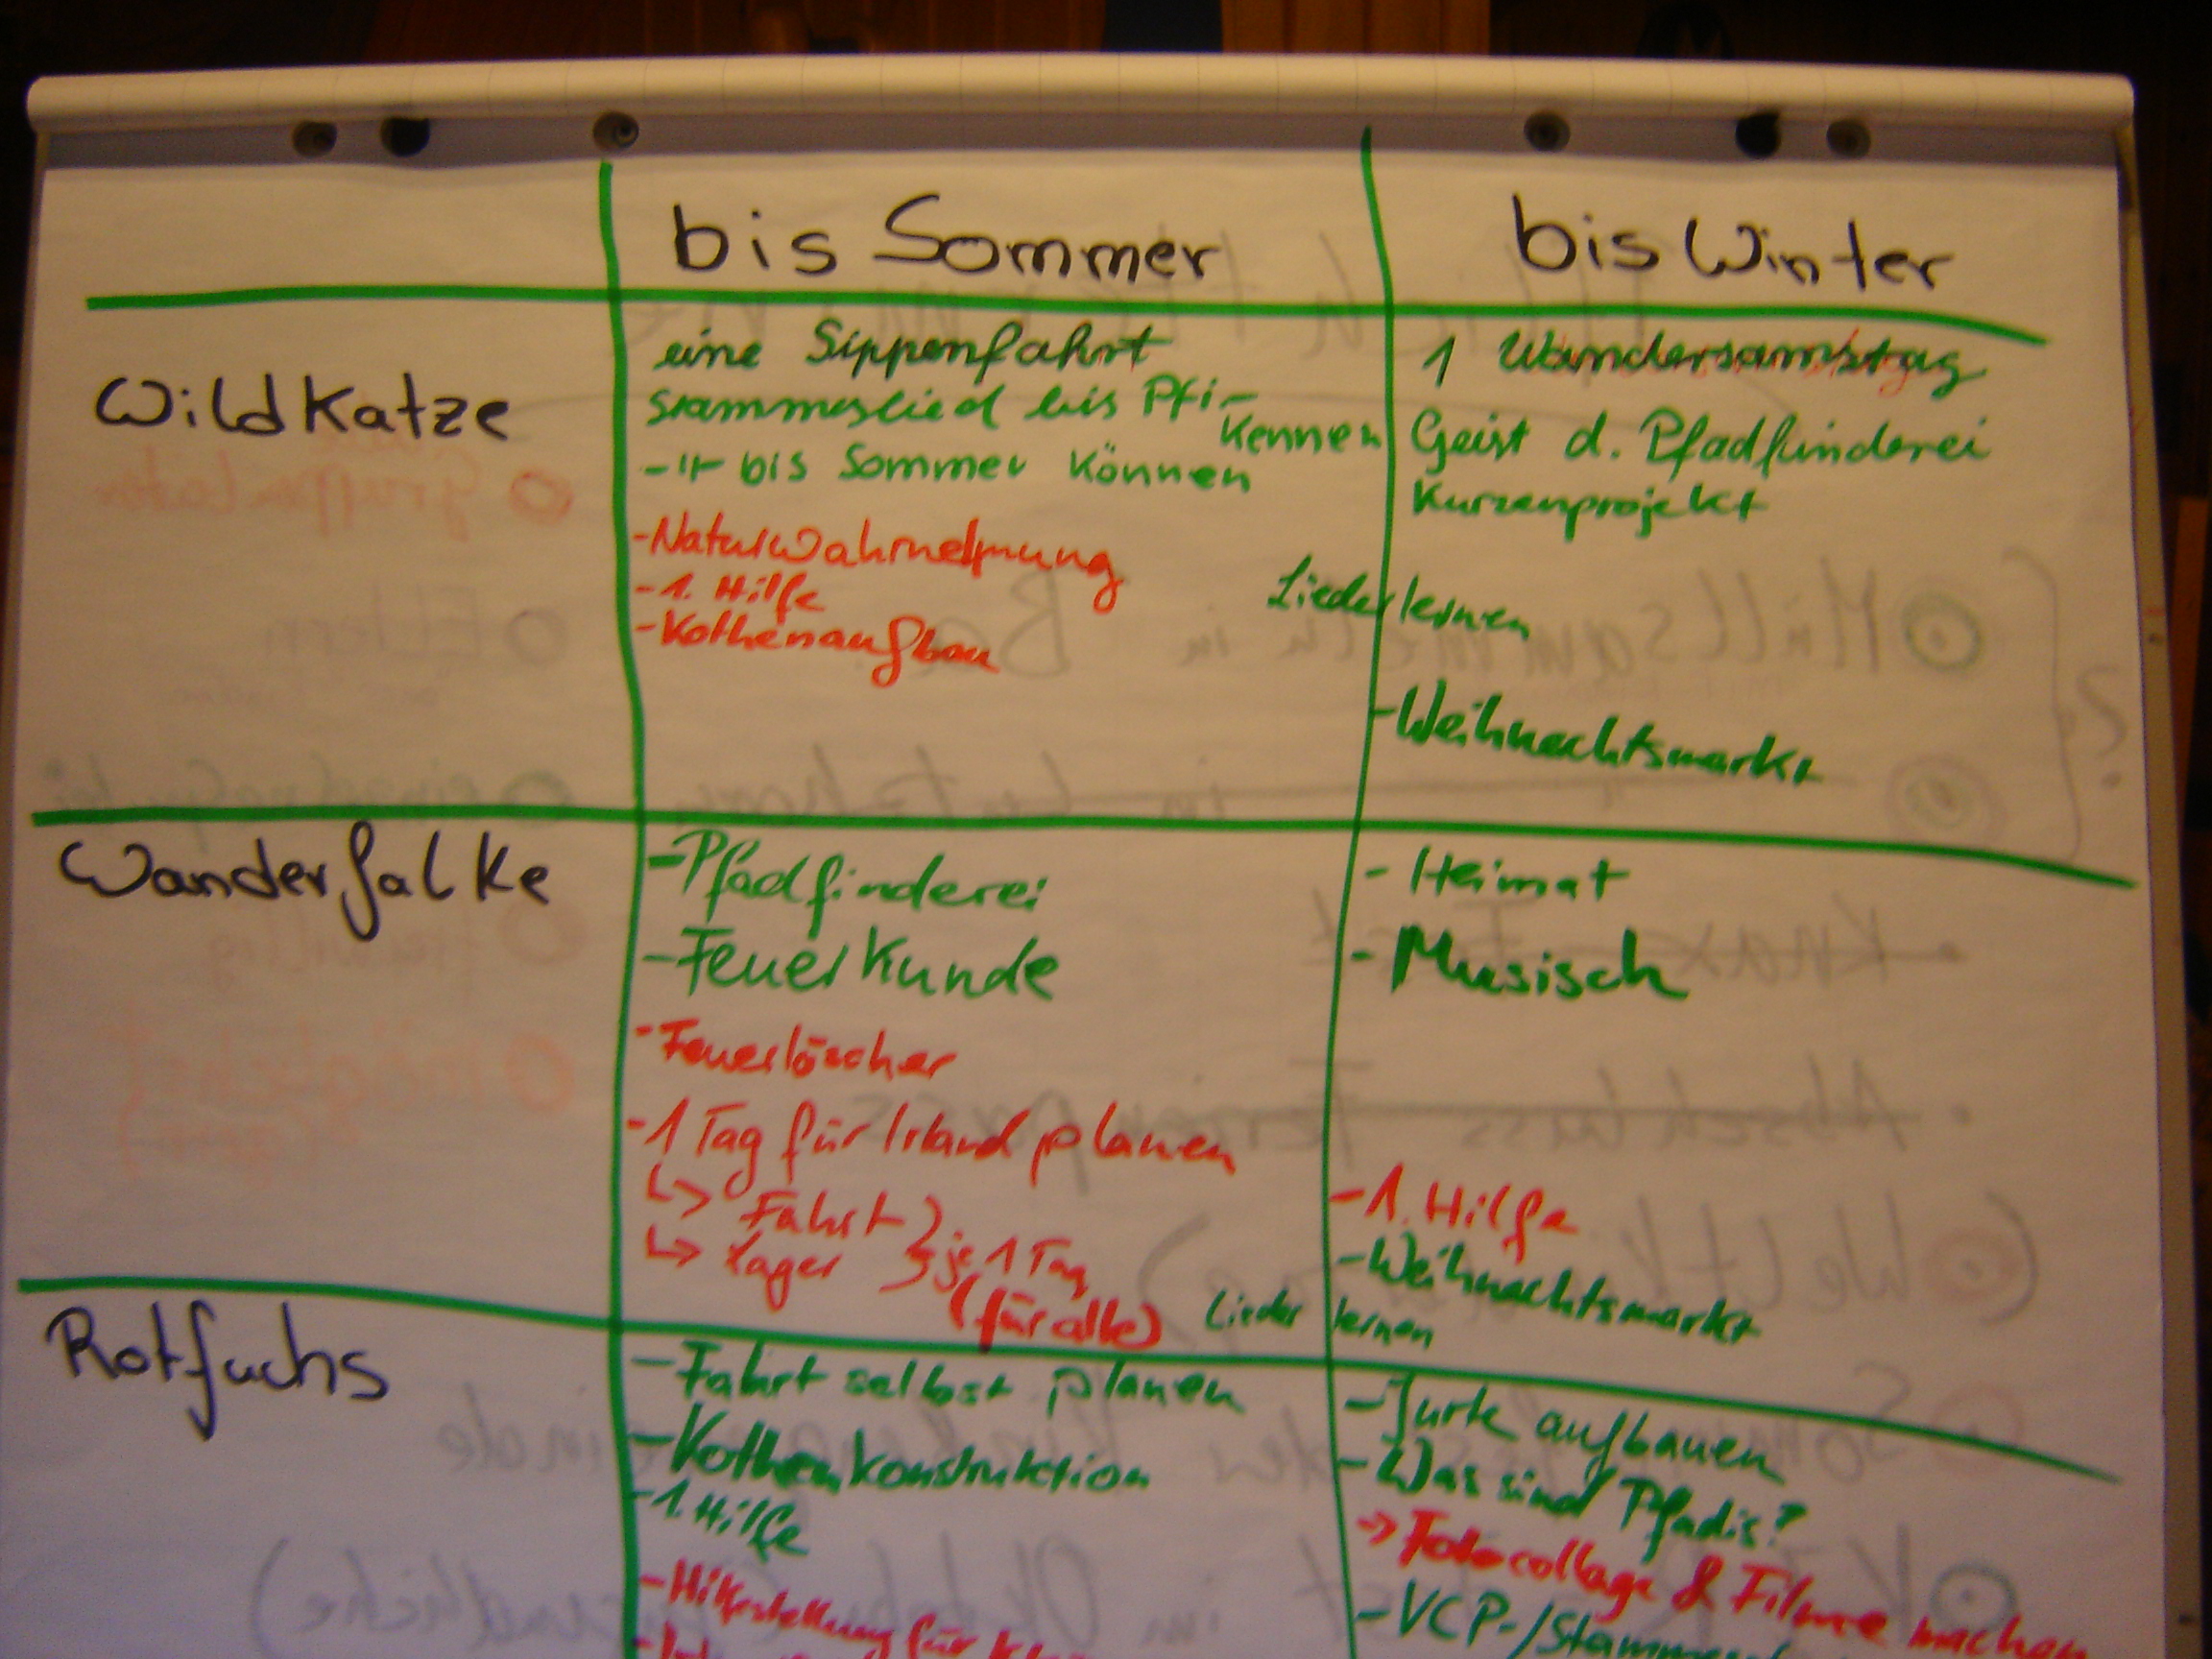 bis Sommer
bis Winter
Wildkatze
eine Sippenfahrt
Stammeslied bis Pfi-
kennen
-"- bis Sommer können
-Naturwahrnehmung
-1. Hilfe
-Kothenaufbau
1 Wandersamstag
Geist d. Pfadfinderei
Kurzenprojekt
Lieder lernen
-Weihnachtsmarkt
Wanderfalke
-Pfadfinderei
-Feuerkunde
-Feuerlöscher
-1 Tag für Irland planen
↳ Fahrt
↳ Lager } je 1 Tag
(für alle)
- Heimat
- Musisch
-1. Hilfe
-Weihnachtsmarkt
Lieder lernen
Rotfuchs
-Fahrt selbst planen
-Kothenkonstruktion
-1. Hilfe
-Hilfestellung für
-Jurte aufbauen
-Was sind Pfadis?
→ Fotocollage & Filme machen
-VCP-/Stammes